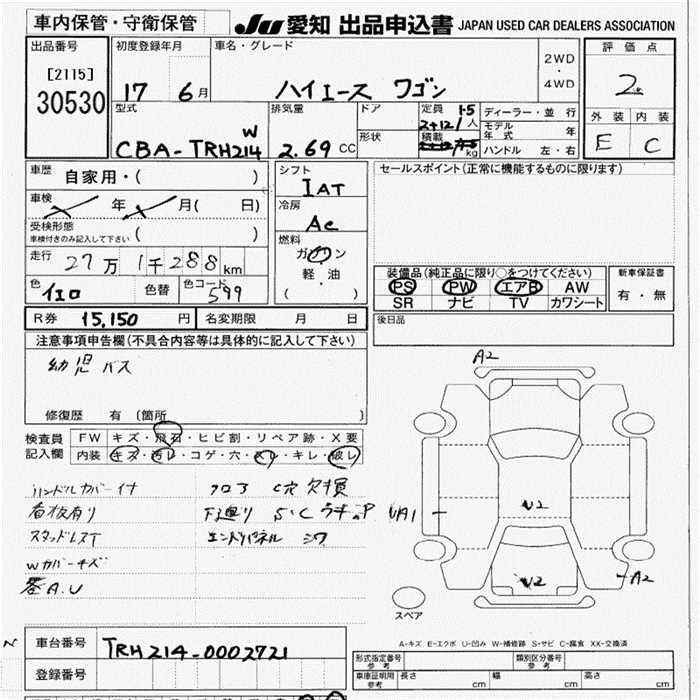 車内保管・守衛保管
JU 愛知 出品申込書 JAPAN USED CAR DEALERS ASSOCIATION
出品番号
[2115]
30530
初度登録年月
17 6月
車名・グレード
ハイエース ワゴン
2WD
・
4WD
評価点
2
外装 内装
E C
型式
CBA-TRH214W
排気量
2.69 CC
ドア
形状
定員 1.5
2+12/人
積載
kg
ディーラー・並行
モデル年式 年
ハンドル 左・右
車歴 自家用・( )
車検 年 月( 日)
受検形態
車検付きのみ記入して下さい ( )
走行 27万1千288km
色 イエロ 色替 色コード 599
シフト
IAT
冷房
AC
燃料
ガソリン
・
軽・油
( )
セールスポイント(正常に機能するものに限ります)
装備品(純正品に限り○をつけてください)
PS PW エアB AW
SR ナビ TV カワシート
新車保証書
有・無
R券 15,150円 名変期限 月 日
後日品
注意事項申告欄(不具合内容等は具体的に記入して下さい)
幼児バス
修復歴 有 (箇所 )
検査員
記入欄
FW キズ・飛石・ヒビ割・リペア跡・X要
内装 キズ・汚レ・コゲ・穴・スレ・キレ・破レ
ハンドルカバー付 フロア C穴 欠損
看板有り 下廻り S・C
スタッドレス エンドパネル シワ
Wカバーキズ
A.U
A2
UA1
U2
U2
A2
スペア
A-キズ E-エクボ U-凹み W-補修跡 S-サビ C-腐食 XX-交換済
車台番号 TRH214-0002721
登録番号
形式指定番号
参考
類別区分番号
参考
車庫証明用
参考
長さ cm 幅 cm 高さ cm